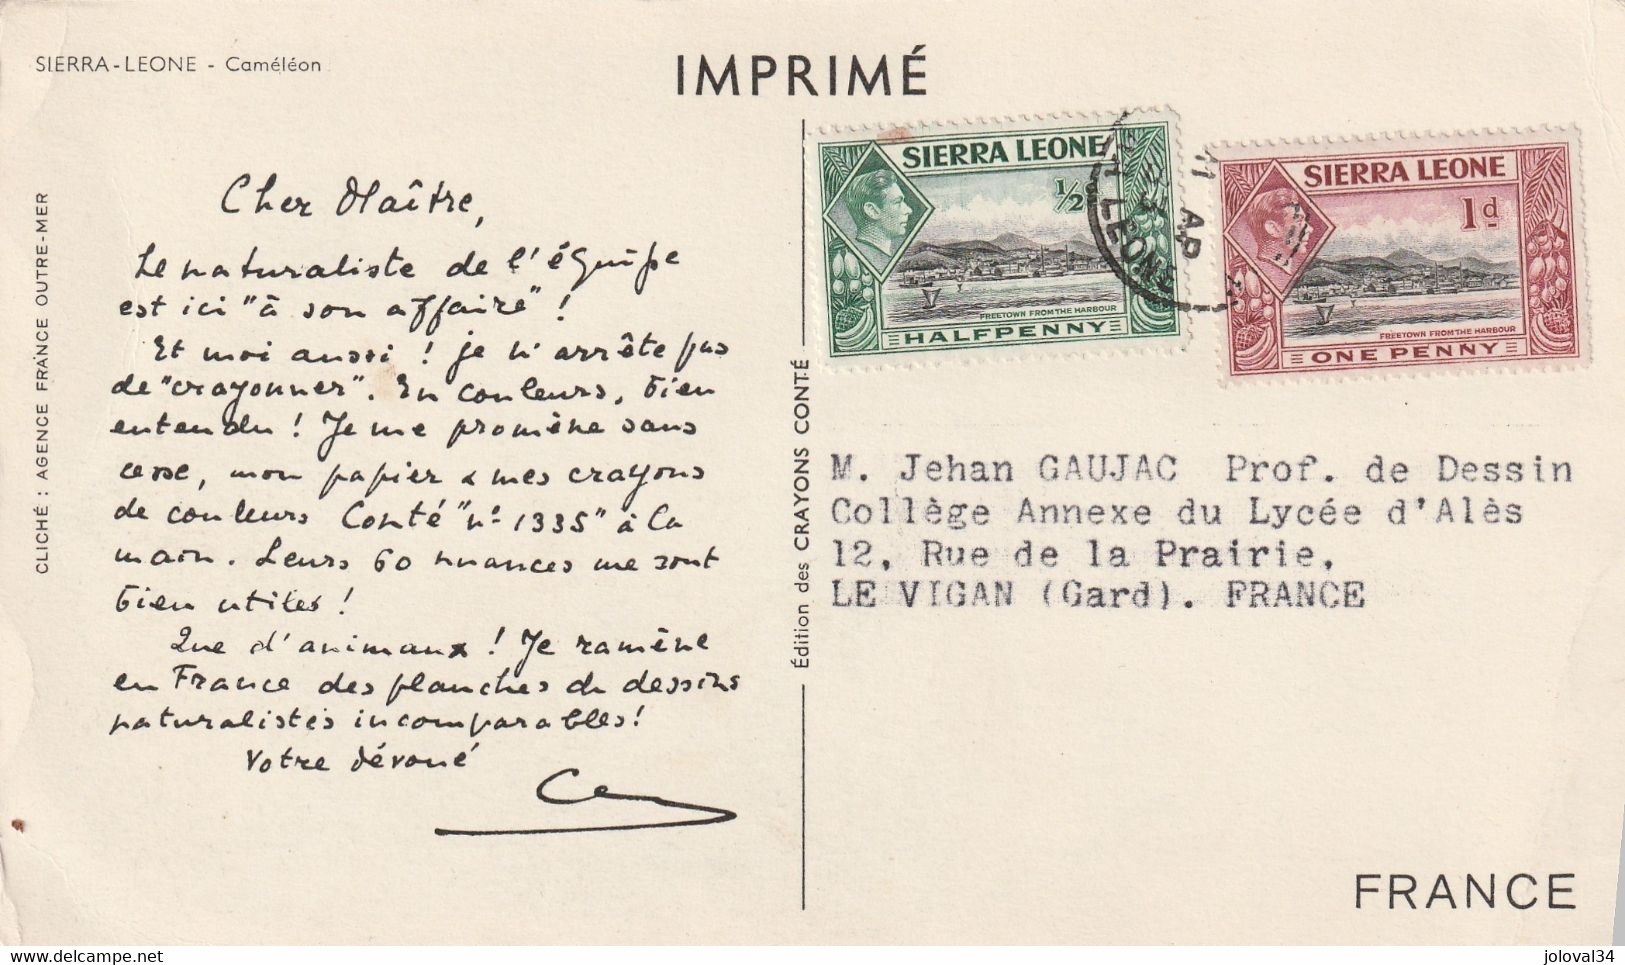 SIERRA-LEONE - Caméléon
IMPRIMÉ
CLICHÉ : AGENCE FRANCE OUTRE-MER
Cher Maître,
Le naturaliste de l'équipe
est ici "à son affaire" !
Et moi aussi ! je n'arrête pas
de "crayonner". En couleurs, bien
entendu ! Je me promène sans
cesse, mon papier & mes crayons
de couleurs Conté "nº 1335" à la
main. Leurs 60 nuances me sont
bien utiles !
Que d'animaux ! Je ramène
en France des planches de dessins
naturalistes incomparables !
Votre dévoué
Édition des CRAYONS CONTÉ
SIERRA LEONE
1/2d
FREETOWN FROM THE HARBOUR
HALFPENNY
SIERRA LEONE
1d
FREETOWN FROM THE HARBOUR
ONE PENNY
11 AP
LEONE
M. Jehan GAUJAC Prof. de Dessin
Collège Annexe du Lycée d'Alès
12, Rue de la Prairie,
LE VIGAN (Gard). FRANCE
FRANCE
delcampe.net
joloval34